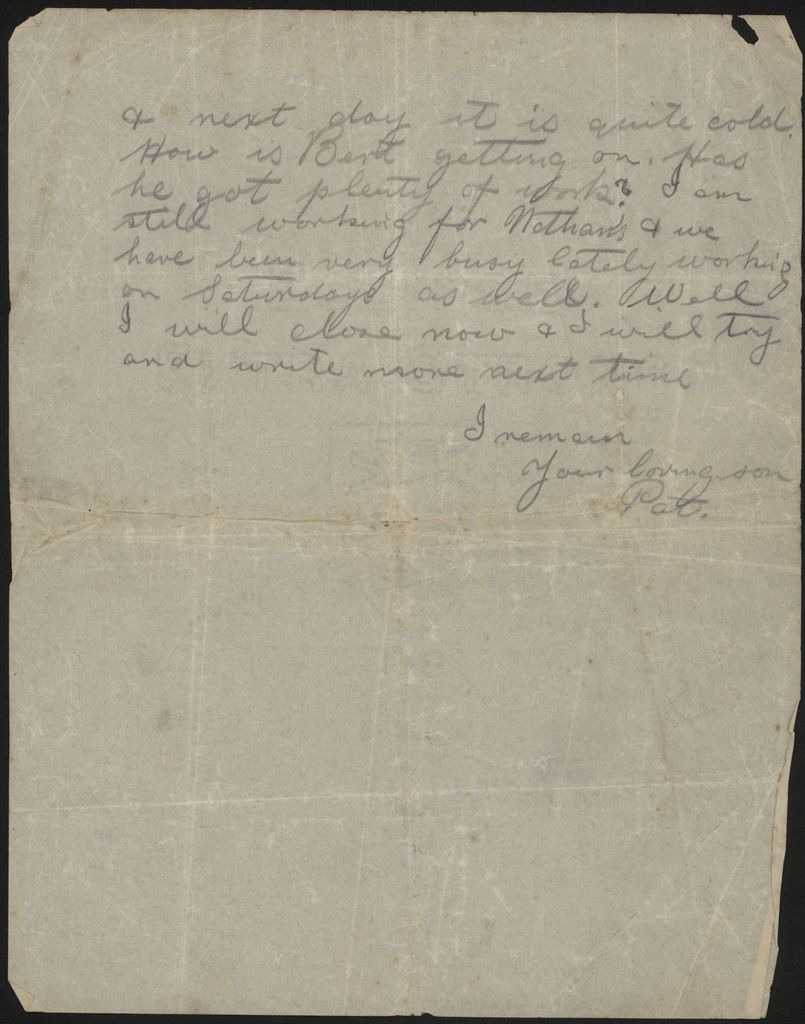 & next day it is quite cold.
How is Bert getting on. Has
he got plenty of work? I am
still working for Nathan's & we
have been very busy lately working
on Saturdays as well. Well
I will close now & I will try
and write more next time
I remain
Your loving son
Pat.